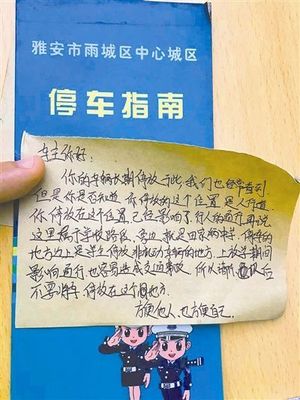 雅安市雨城区中心城区
停车指南
车主你好:
你的车辆长期停放于此,我们也经常看到
但是你是否知道 你停放的这个位置 是人行道
你停放在这个位置 已经影响了行人的通行 再说
这里属于学校路段,旁边就是田家炳中学,停车的
地方也是学生停放非机动车辆的地方,上放学期间
影响通行也容易造成交通事故,所以请以后
不要将车停放在这个地方.
方便他人,也方便自己.